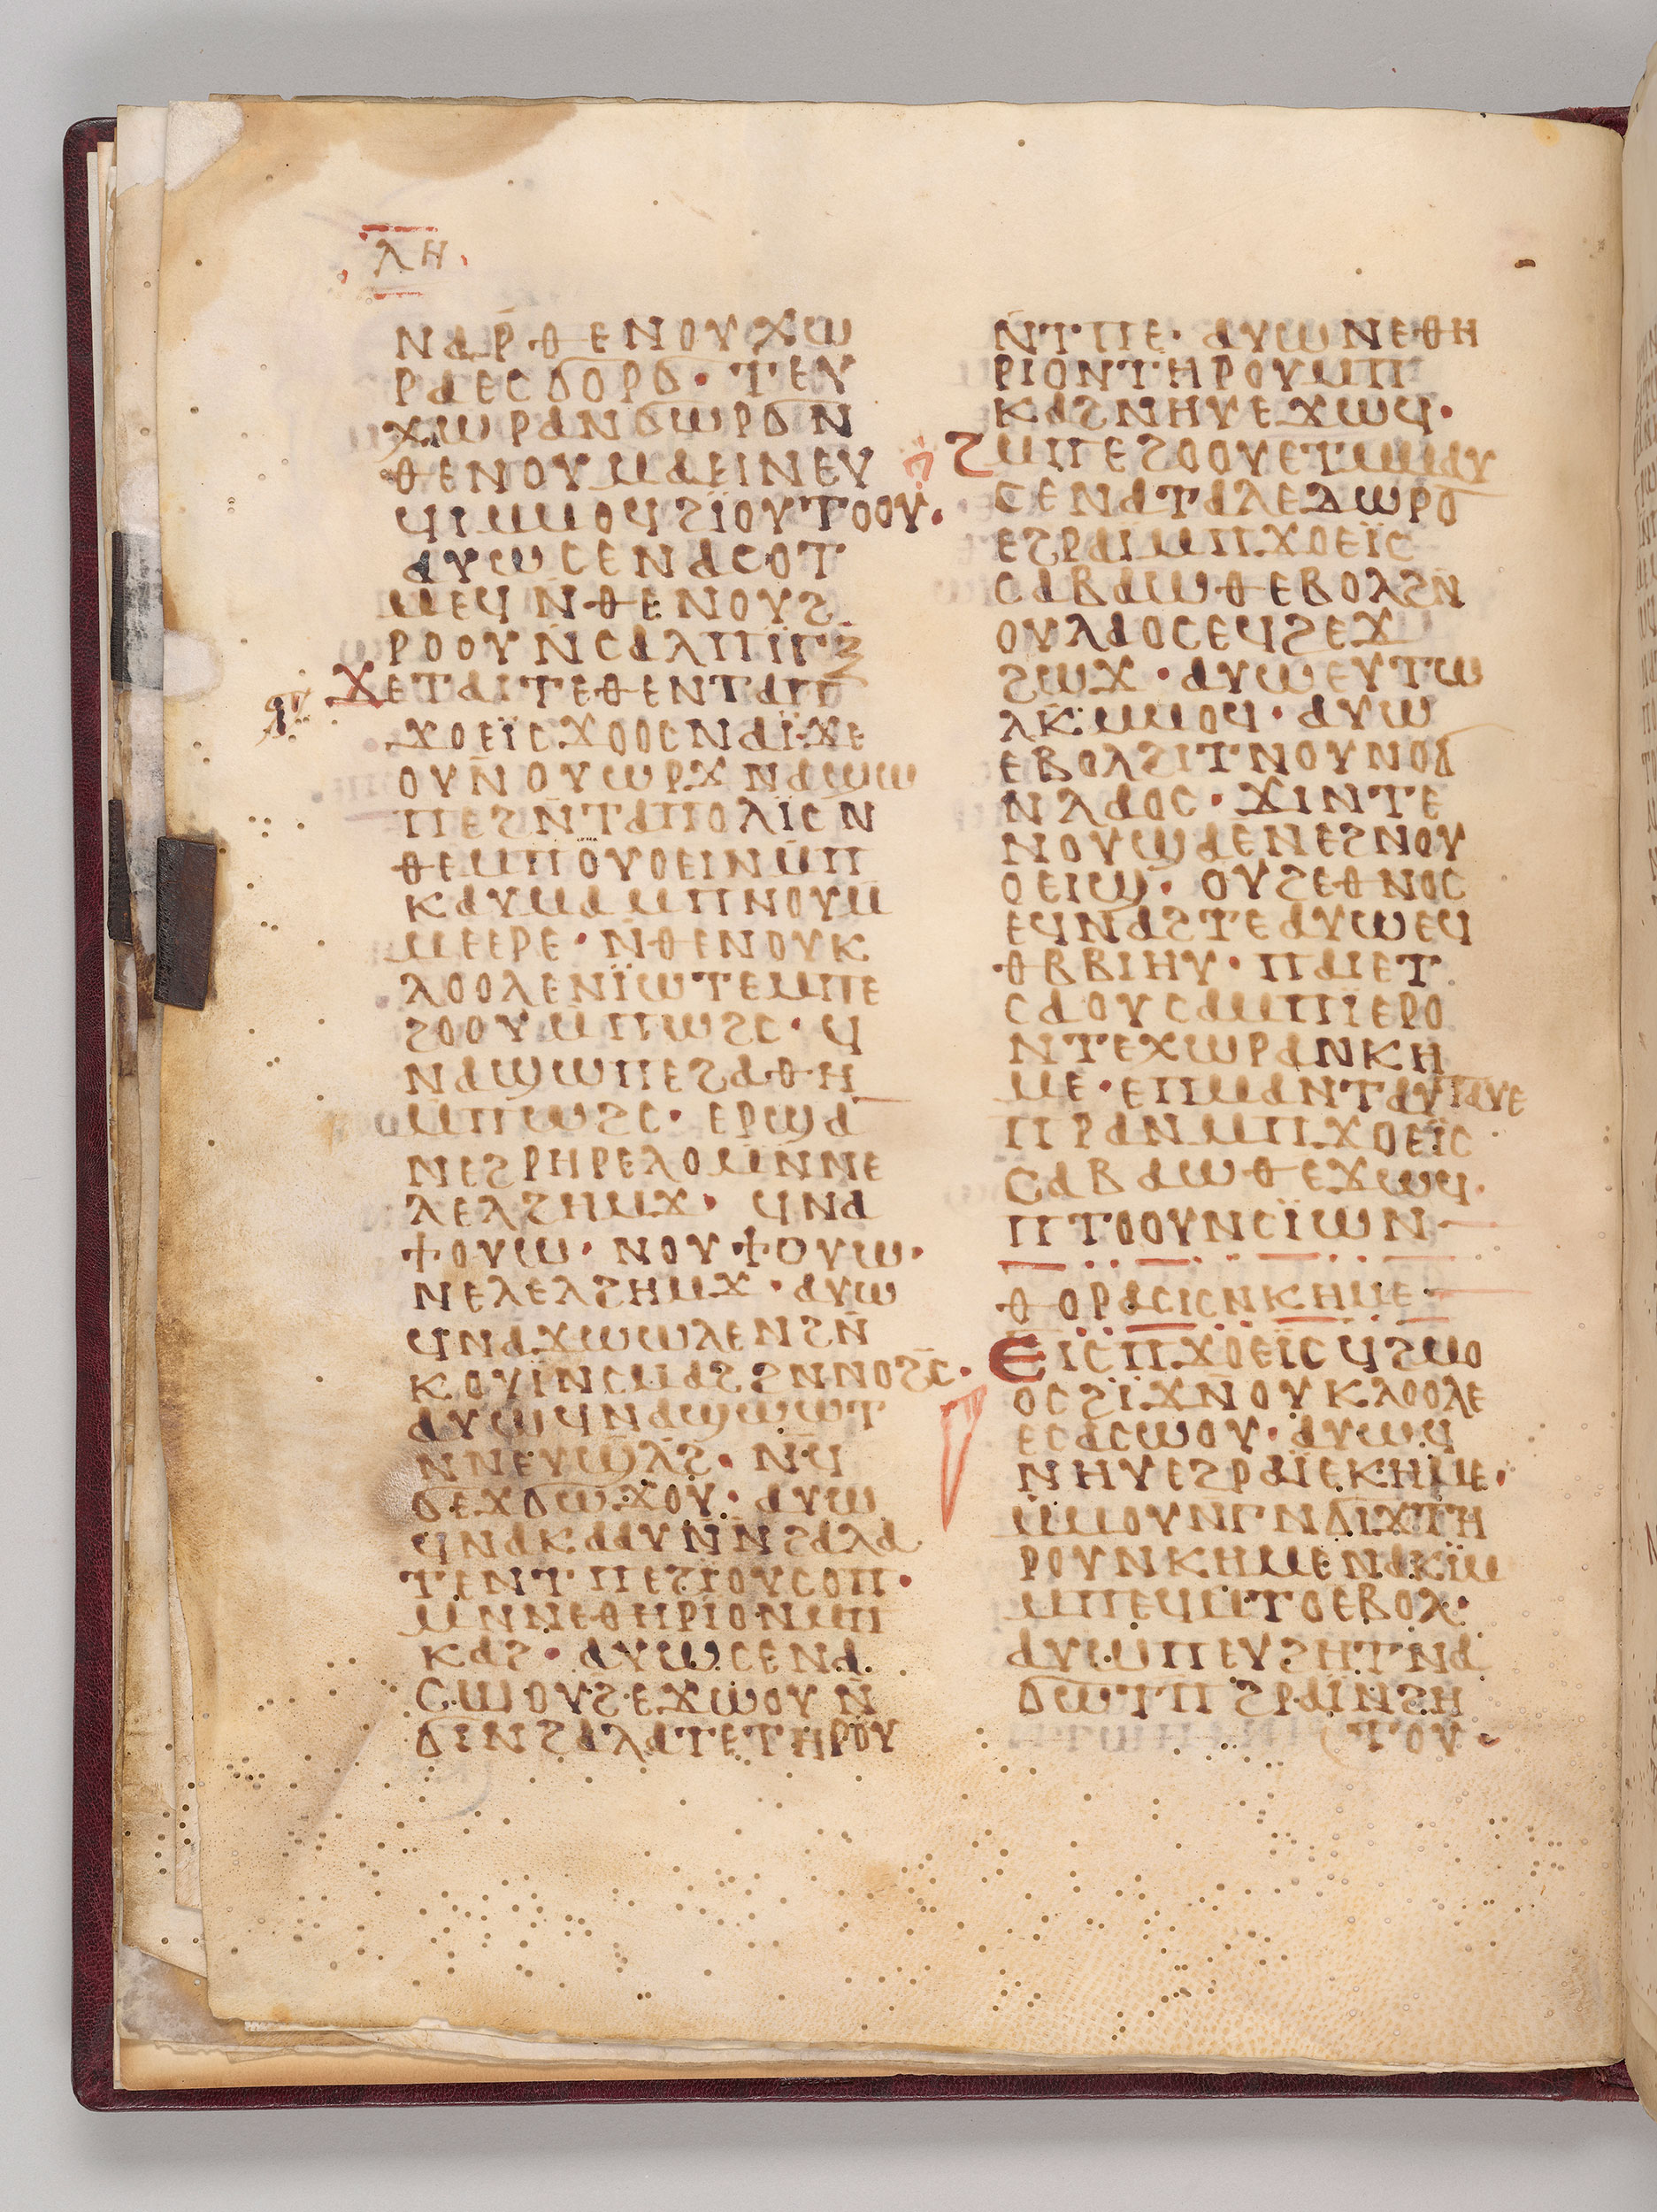 ⲗⲏ
ⲛⲁⲣ̄ⲑⲉⲛⲟⲩⲭⲱ
ⲣⲁⲉⲥϭⲟⲣϭ· ⲧⲉⲩ
ⲭⲱⲣⲁⲛϭⲱⲣϭⲛ̄
ⲑⲉⲛⲟⲩⲙⲁⲉⲓⲛⲉⲩ
ϥⲓⲙⲙⲟϥϩⲓ̈ⲟⲩⲧⲟⲟⲩ·
ⲁⲩⲱⲥⲉⲛⲁⲥⲟⲧ
ⲙⲉϥⲛ̄ⲑⲉⲛⲟⲩϩ
ⲣⲟⲟⲩⲛ̄ⲥⲁⲗⲡⲓ̈ⲅⲝ
ϫⲉⲧⲁⲓⲧⲉⲑⲉⲛⲧⲁⲡ
ϫⲟⲉⲓ̈ⲥϫⲟⲟⲥⲛⲁⲓ̈ϫⲉ
ⲟⲩⲛ̄ⲟⲩⲱⲣϫⲛⲁϣⲱ
ⲡⲉϩⲛ̄ⲧⲁⲡⲟⲗⲓ̈ⲥⲛ
ⲑⲉⲙⲡⲟⲩⲟⲉⲓⲛⲙ̄ⲡ
ⲕⲁⲩⲙⲁⲙⲡⲛⲟⲩⲙ
ⲙⲉⲉⲣⲉ· ⲛ̄ⲑⲉⲛⲟⲩⲕ
ⲗⲟⲟⲗⲉⲛⲓ̈ⲱⲧⲉⲙⲡⲉ
ϩⲟⲟⲩⲙ̄ⲡⲱϩⲥ· ϥ
ⲛⲁϣⲱⲡⲉϩⲁⲑⲏ
ⲙⲡⲱϩⲥ· ⲉⲣϣⲁ
ⲛⲉϩⲣⲏⲣⲉⲗⲟⲙⲛⲛⲉ
ⲗⲉⲗϩⲏⲙϫ· ϥⲛⲁ
ϯⲟⲩⲱ· ⲛⲟⲩϯⲟⲩⲱ·
ⲛⲉⲗⲉⲗϩⲏⲙϫ· ⲁⲩⲱ
ϥⲛⲁϫⲱⲱⲗⲉⲛϩⲛ̄
ⲕⲟⲩⲓ̈ⲛⲥⲙⲁϩϩⲛⲛⲟϩⲥ̄·
ⲁⲩⲱϥⲛⲁϣⲱⲱⲧ
ⲛⲛⲉⲩϣⲗ̄ϩ· ⲛϥ̄
ϭⲉϫϭⲱϫⲟⲩ· ⲁⲩⲱ
ϥⲛⲁⲕⲁⲁⲩⲛ̄ⲛ̄ϩⲁⲗⲁ
ⲧⲉⲛⲧⲡⲉϩⲓ̈ⲟⲩⲥⲟⲡ·
ⲙⲛⲛⲉⲑⲏⲣⲓⲟⲛⲙⲡ
ⲕⲁϩ· ⲁⲩⲱⲥⲉⲛⲁ
ⲥⲱⲟⲩϩⲉϫⲱⲟⲩⲛ̄
ϭⲓⲛϩⲁⲗⲁⲧⲉⲧⲏⲣⲟⲩ
ⲛ̄ⲧⲡⲉ· ⲁⲩⲱⲛⲉⲑⲏ
ⲣⲓⲟⲛⲧⲏⲣⲟⲩⲙⲡ
ⲕⲁϩⲛⲏⲩⲉϫⲱϥ·
ϩⲙⲡⲉϩⲟⲟⲩⲉⲧⲙⲙⲁⲩ
ⲥⲉⲛⲁⲧⲁⲗⲉⲇⲱⲣⲟ
ⲉϩⲣⲁⲓⲙⲡϫⲟⲉⲓ̈ⲥ
ⲥⲁⲃⲁⲱⲑⲉⲃⲟⲗϩⲛ̄
ⲟⲩⲗⲁⲟⲥⲉϥϩⲉϫ
ϩⲱϫ· ⲁⲩⲱⲉⲩⲧⲱ
ⲗⲕⲙⲙⲟϥ· ⲁⲩⲱ
ⲉⲃⲟⲗϩⲓⲧⲛⲟⲩⲛⲟϭ
ⲛⲗⲁⲟⲥ· ϫⲓⲛⲧⲉ
ⲛⲟⲩϣⲁⲉⲛⲉϩⲛⲟⲩ
ⲟⲉⲓϣ· ⲟⲩϩⲉⲑⲛⲟⲥ
ⲉϥⲛⲁϩⲧⲉⲁⲩⲱⲉϥ
ⲑⲃⲃⲓⲏⲩ· ⲡⲁⲓⲉⲧ
ⲥⲁⲟⲩⲥⲁⲙⲡⲓ̈ⲉⲣⲟ
ⲛⲧⲉⲭⲱⲣⲁⲛⲕⲏ
ⲙⲉ· ⲉⲡⲙⲁⲛⲧⲁⲩⲧⲁⲩⲉ
ⲡⲣⲁⲛⲙⲡϫⲟⲉⲓ̈ⲥ
ⲥⲁⲃⲁⲱⲑⲉϫⲱϥ·
ⲡⲧⲟⲟⲩⲛⲥⲓ̈ⲱⲛ
ⲑⲟⲣⲁⲥⲓⲥⲛⲕⲏⲙⲉ·
ⲉⲓⲥⲡϫⲟⲉⲓ̈ⲥϥϩⲙⲟ
ⲟⲥϩⲓ̈ϫⲛ̄ⲟⲩⲕⲗⲟⲟⲗⲉ
ⲉⲥⲁⲥⲱⲟⲩ· ⲁⲩⲱϥ
ⲛⲏⲩⲉϩⲣⲁⲓ̈ⲉⲕⲏⲙⲉ·
ⲙ̄ⲙⲟⲩⲛⲅⲛϭⲓϫⲧⲏ
ⲣⲟⲩⲛⲕⲏⲙⲉⲛⲁⲕⲓ̈ⲙ
ⲙⲡⲉϥⲙ̄ⲧⲟⲉⲃⲟⲗ·
ⲁⲩⲱⲡⲉⲩϩⲏⲧⲛⲁ
ϭⲱⲧⲡϩⲣⲁⲓ̈ⲛϩⲏ
ⲧⲟⲩ·